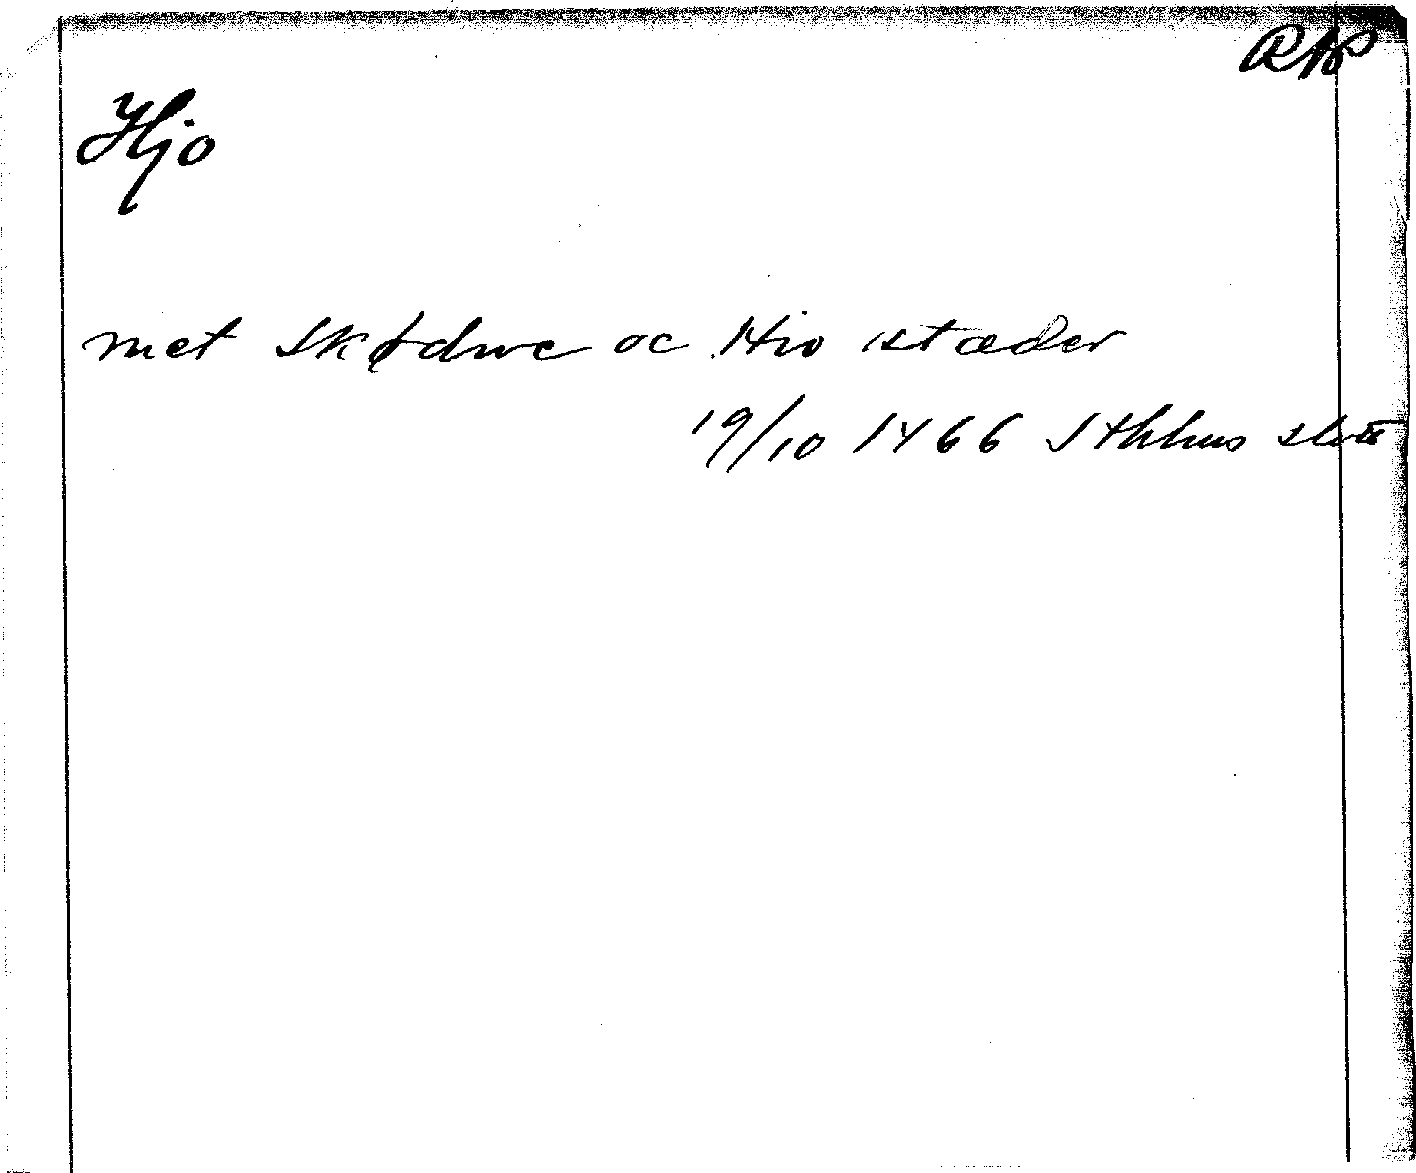 RAP
Hjo
met Skødwe oc Hio stæder
19/10 1466 Sthlms slott